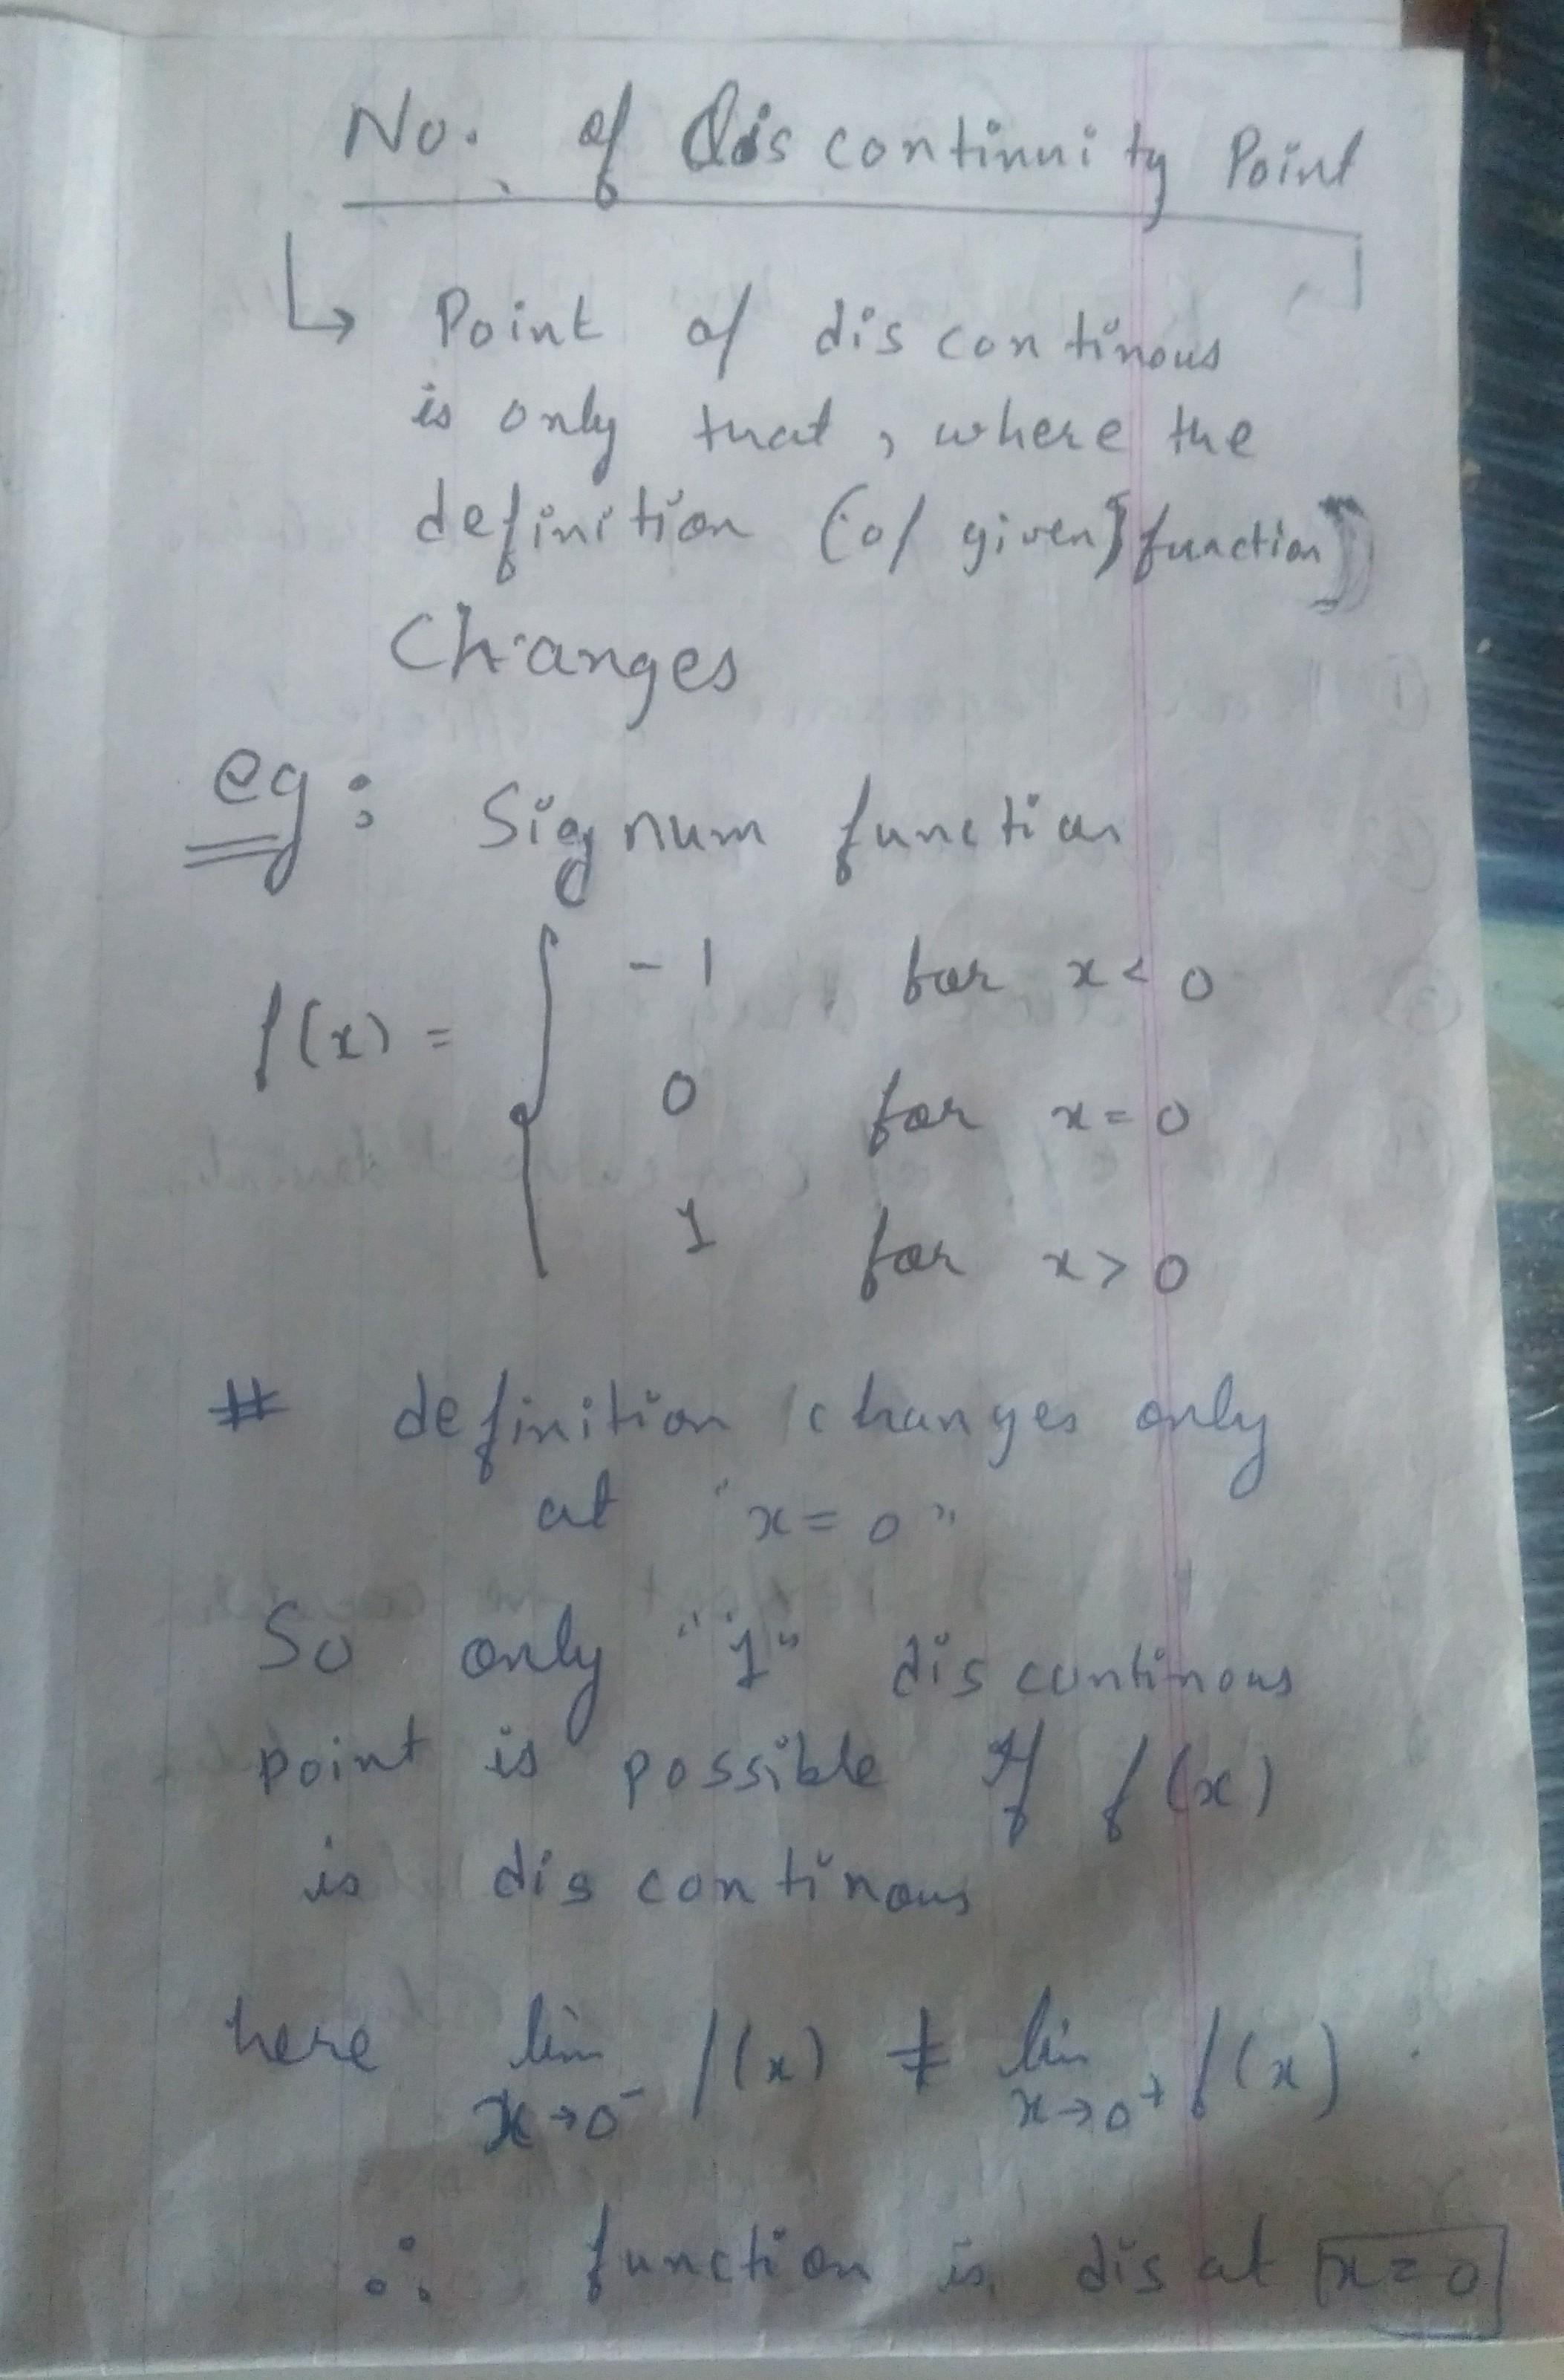 No. of Discontinuity Point
↳ Point of discontinous
is only that, where the
definition (of given) function)
Changes
eg: Signum function
f(x) = { -1 for x < 0
0 for x = 0
1 for x > 0
# definition changes only
at "x = 0"
So only "1" discontinous
point is possible If f(x)
is discontinous
here lim x→0⁻ f(x) ≠ lim x→0⁺ f(x)
∴ function is dis at x = 0